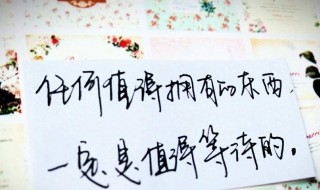 任何值得拥有的东西,
一定是值得等待的。